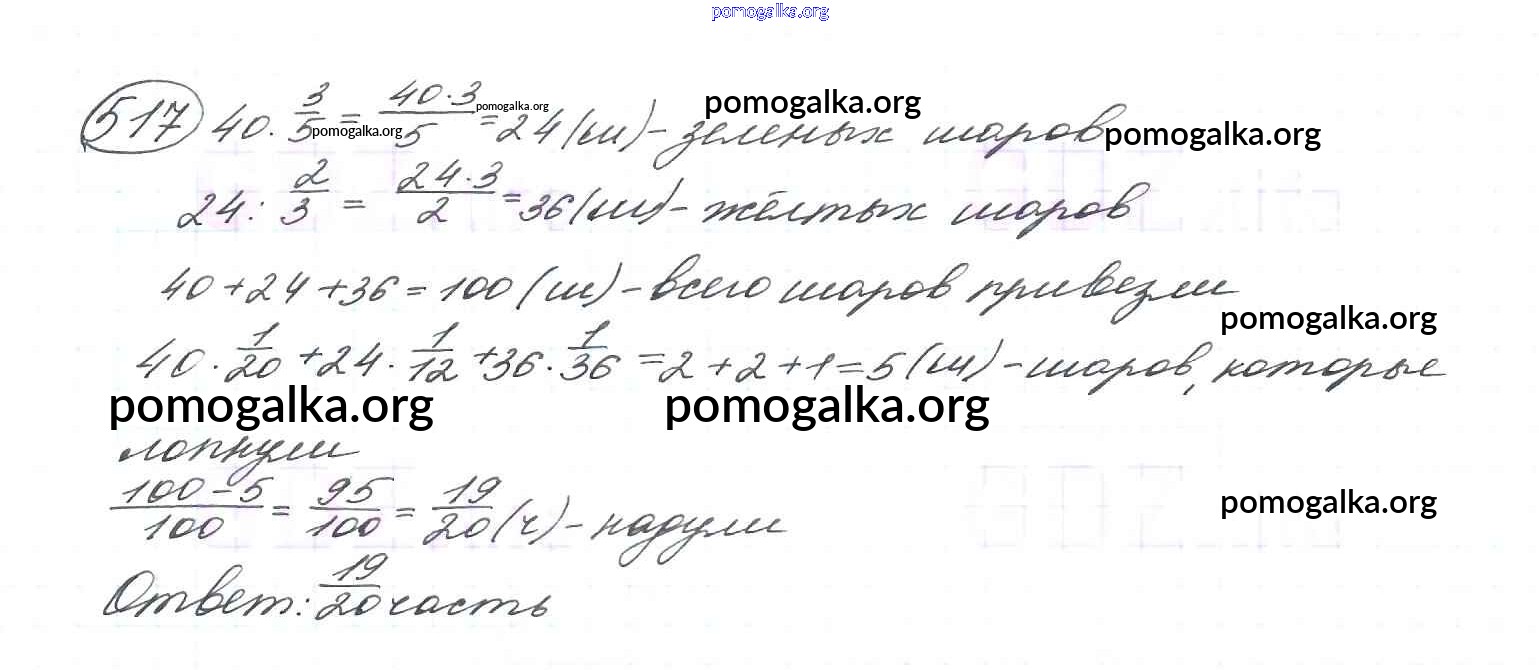 pomogalka.org
517 40 · 3/5 = 40·3/5 = 24 (ш) - зеленых шаров
pomogalka.org pomogalka.org pomogalka.org pomogalka.org
24 : 2/3 = 24·3/2 = 36 (ш) - жёлтых шаров
40 + 24 + 36 = 100 (ш) - всего шаров привезли
pomogalka.org
40 · 1/20 + 24 · 1/12 + 36 · 1/36 = 2 + 2 + 1 = 5 (ш) - шаров, которые
pomogalka.org pomogalka.org
лопнули
100 - 5/100 = 95/100 = 19/20 (ч) - надули
pomogalka.org
Ответ: 19/20 часть